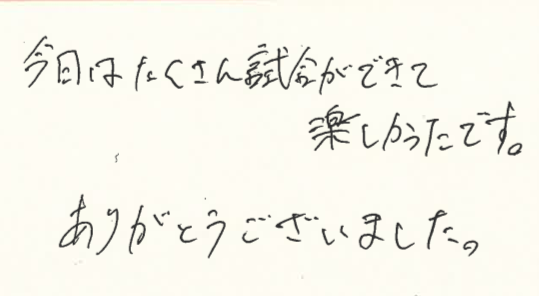 今日はたくさん試合ができて
楽しかったです。
ありがとうございました。